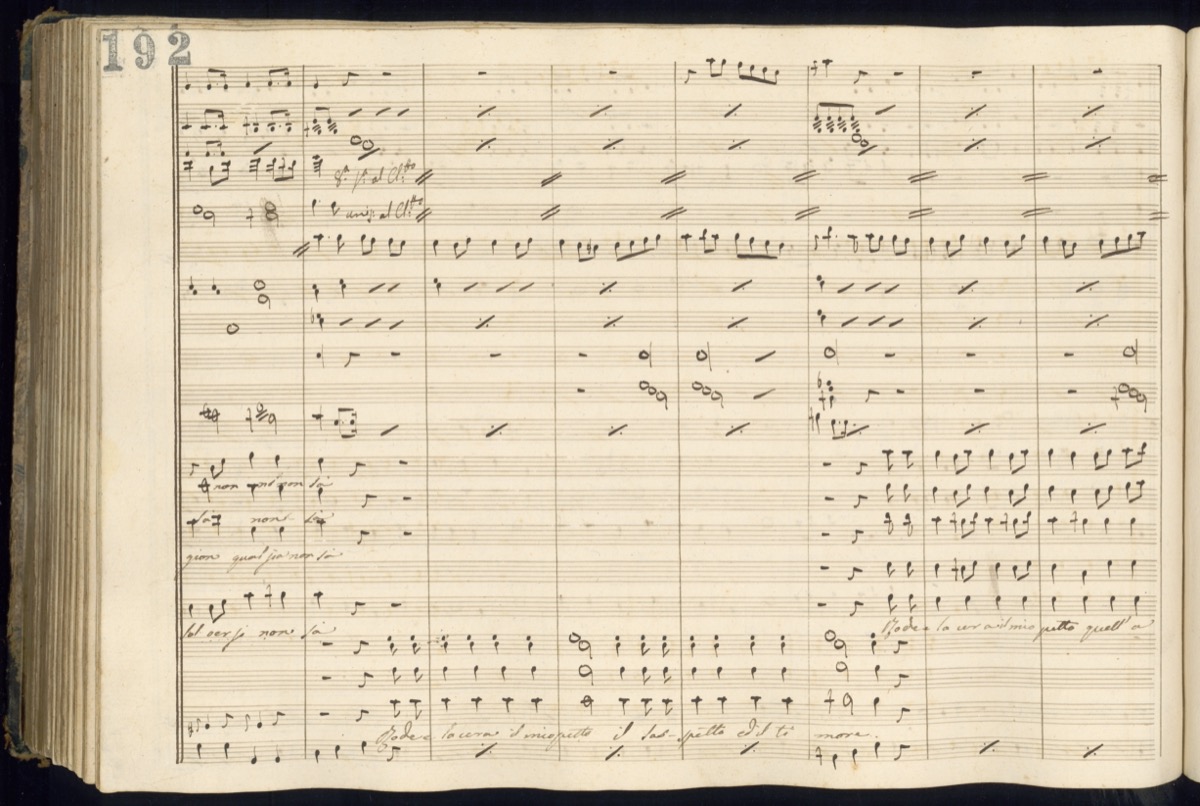 192
al Cl.tto
unis: al Cl.tto
non non sà
sà non sà
gion qual sia non sà
non sà
Rode e lacera il mio petto quell' a
Rode e lacera il mio petto il sos- petto ed il ti more.